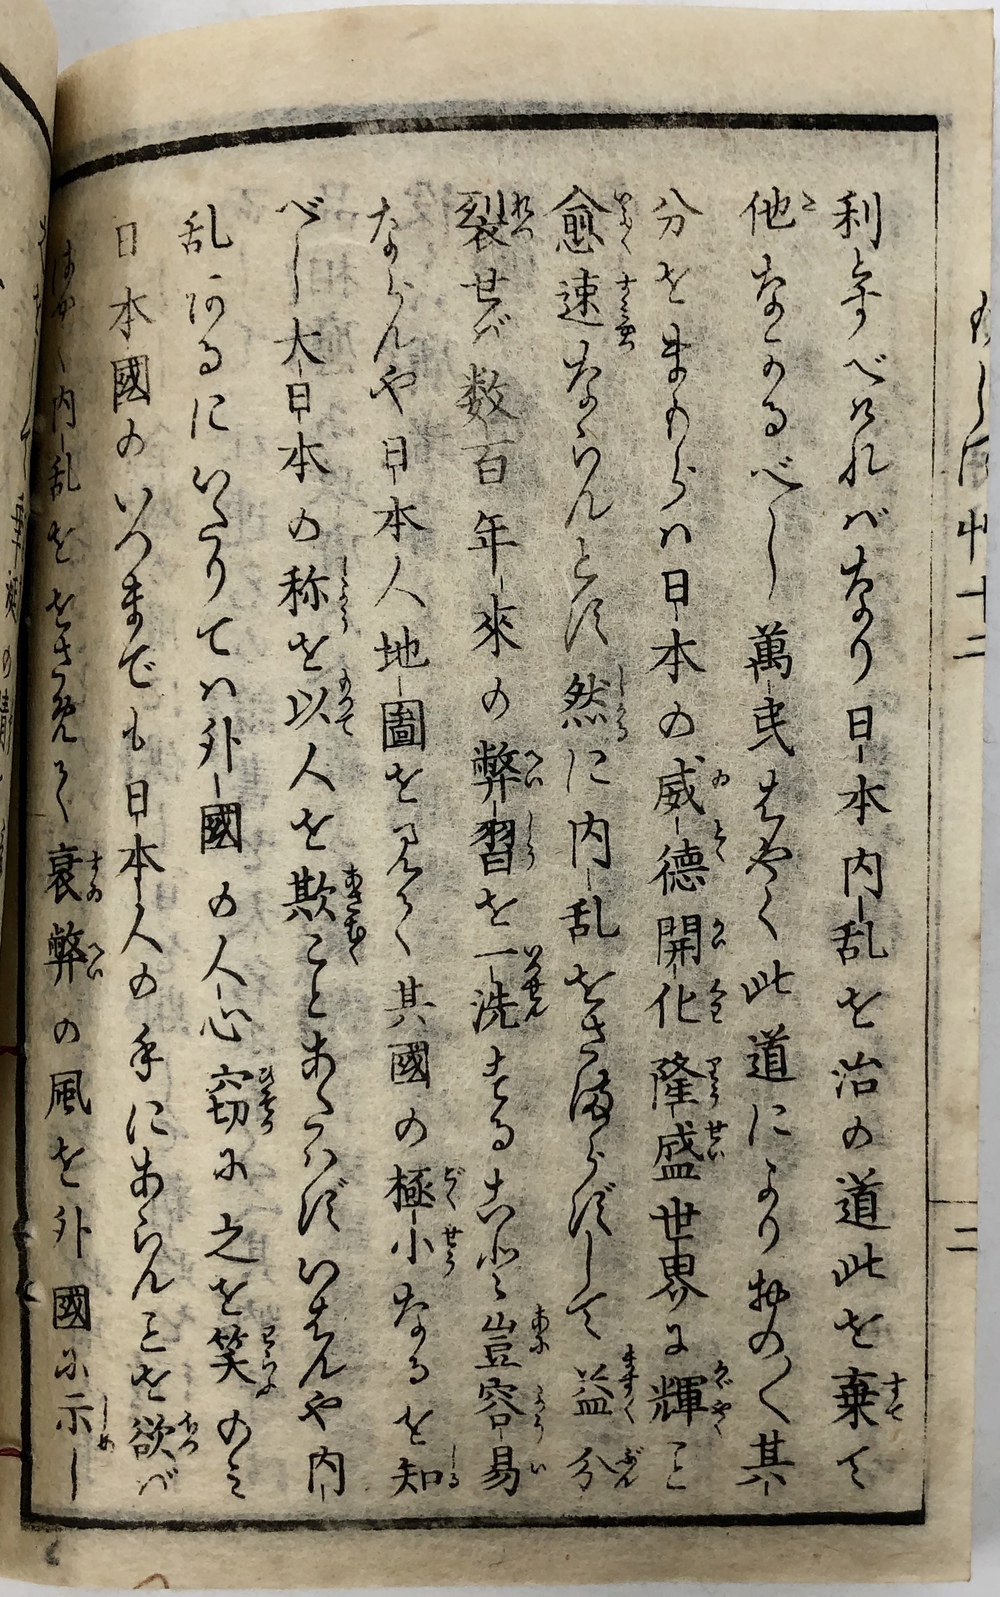 利あすべければなり日本内乱を治の道此を棄て
他なかるべし萬民はやく此道によりおの〱其
分をまもらハ日本の威徳開化隆盛世界に輝こと
愈速ならんとす然に内乱をさまらずして益分
裂せバ数百年來の弊習を一洗する
豈容易
ならんや日本人地圖を見て其國の極小なるを知
べし大日本の称を以人を欺ことあたハずいはんや内
乱あるにいたりてハ外國の人心窃に之を笑のミ
日本國のいつまでも日本人の手にあらんことを欲バ
はやく内乱ををさめて衰弊の風を外國に示し
二